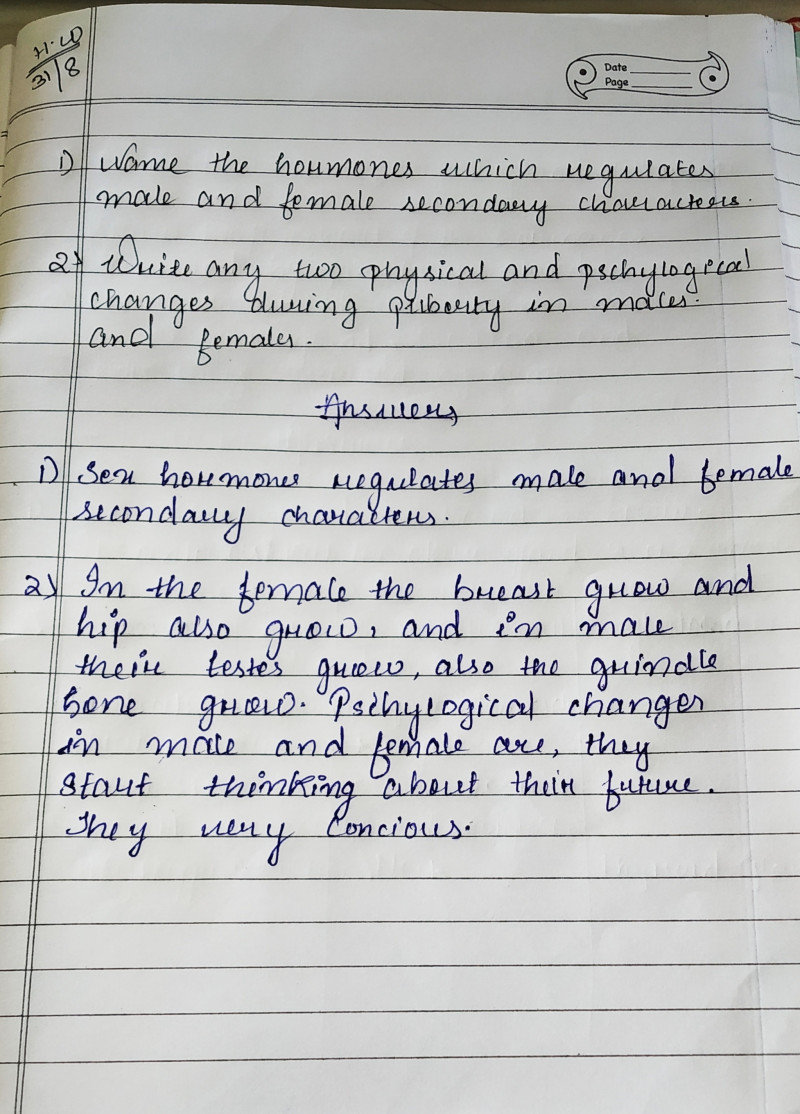 H.W
31/8
Date
Page
1) Name the hormones which regulates
male and female secondary characters.
2) Write any two physical and pschylogical
changes during puberty in males.
and females.
Answers
1) Sex hormones regulates male and female
secondary characters.
2) In the female the breast grow and
hip also grow, and in male
their testes grow, also the grindle
bone grow. Pschylogical changes
in male and female are, they
start thinking about their future.
They very Concious.